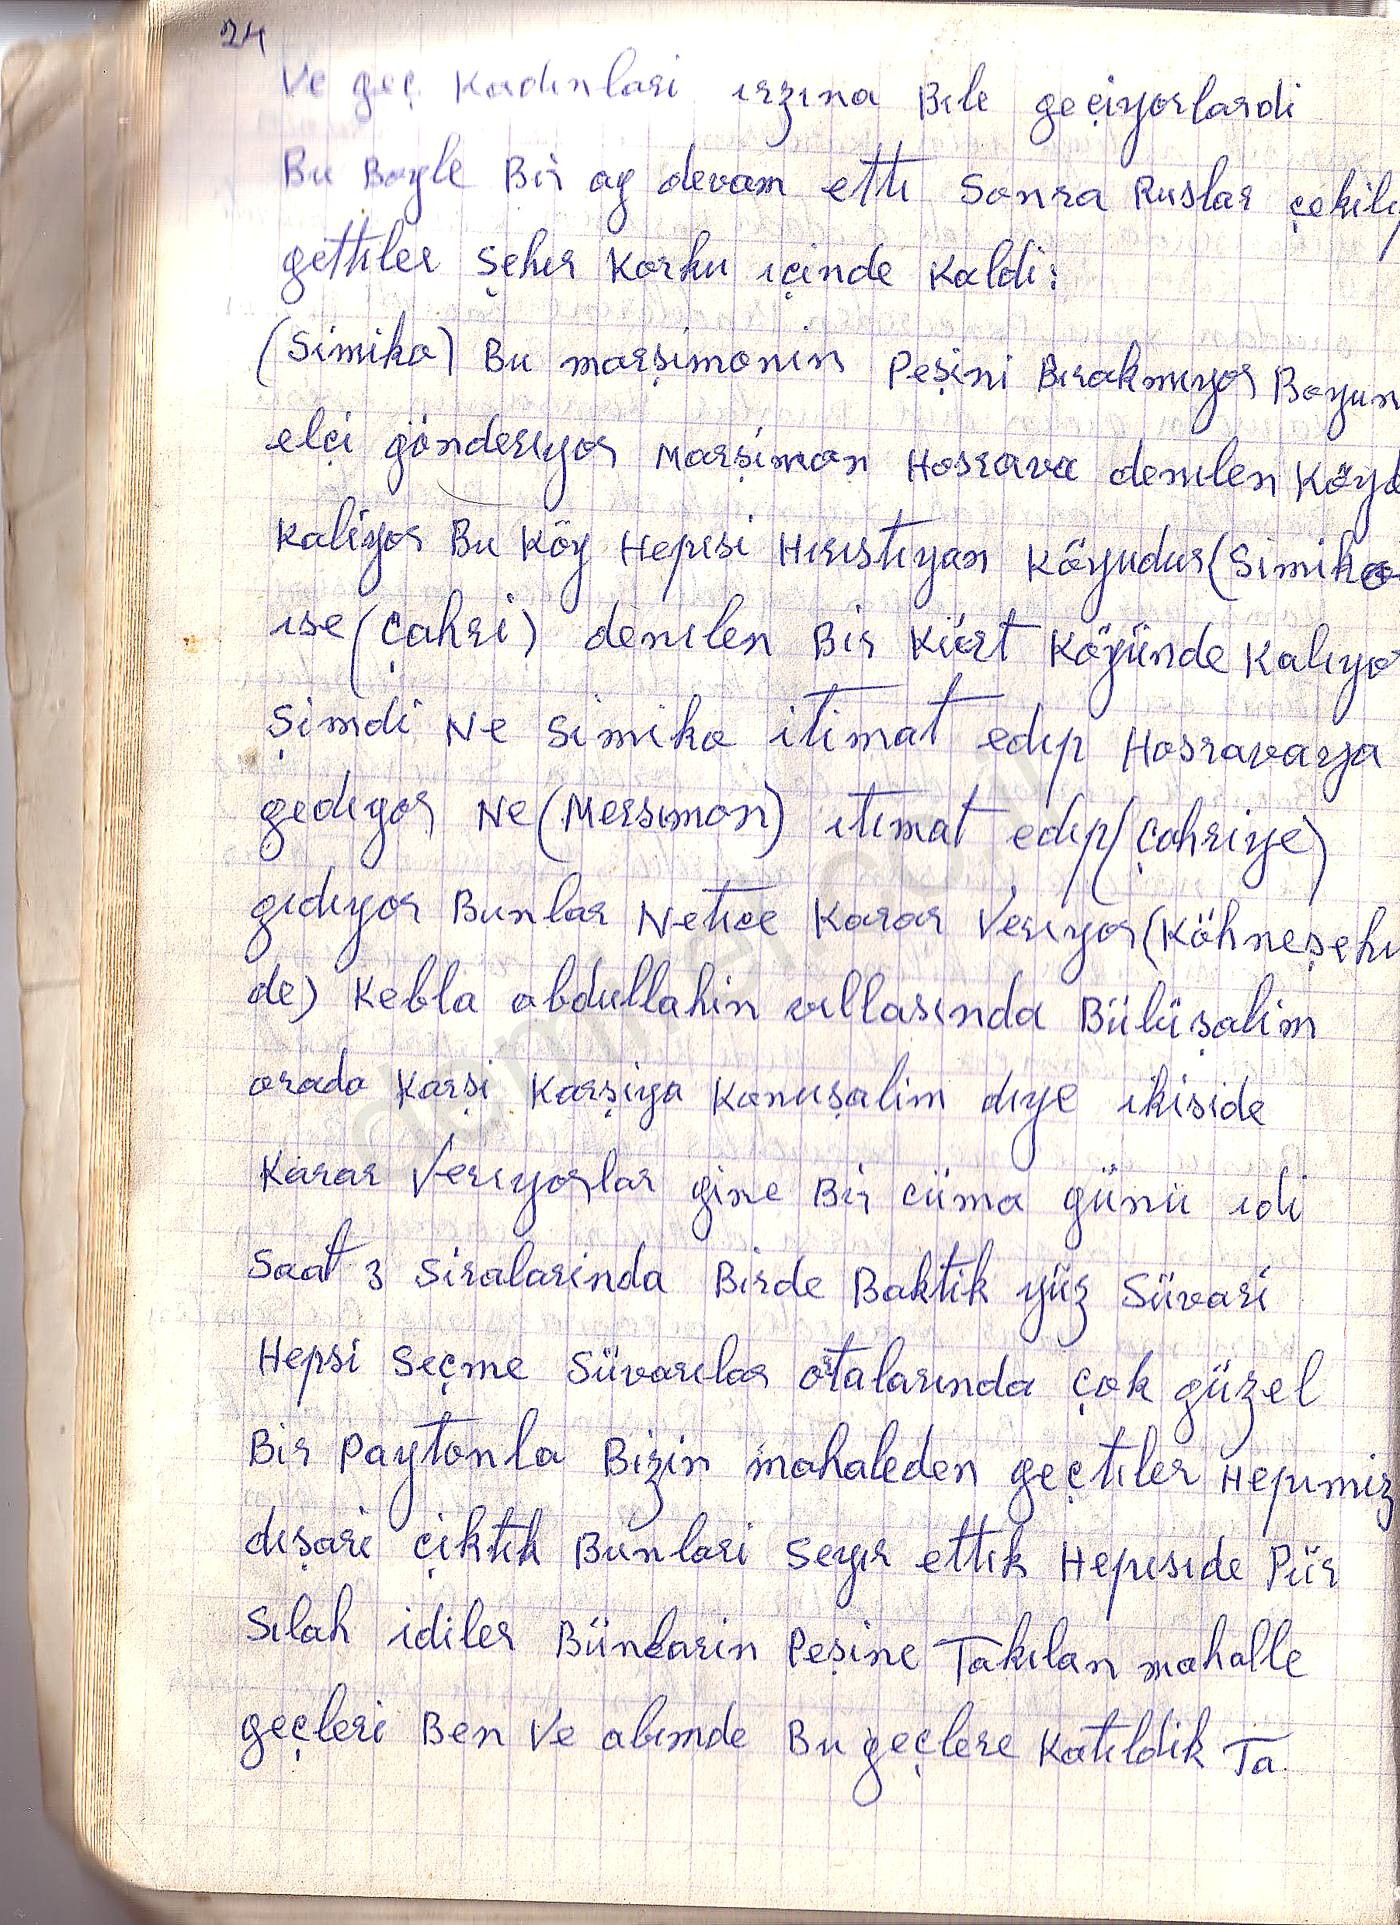 24
Ve geç Kadınlari ırzına Bıle geçiyorlardi
Bu Boyle Bir ay devam ettı Sonra Ruslar çekilıp
gettıler Şehır Korku ıçinde Kaldi:
(Simiko) Bu marşimonin Peşini Bırakmıyor Boyun
elçi gönderıyor Marşimon Hosrava denılen Köyd
Kaliyor Bu Köy Hepısi Hırıstıyan Köyudur (Simiko
ıse (Çahri) denılen Bir Kürt Köyünde Kalıyo
Şimdi Ne Simiko itimat edıp Hosravaya
gedıyor Ne (Mersımon) ıtımat edıp (Çahriye)
gıdıyor Bunlar Netıce Karar Verıyor (Köhneşehı
de) Kebla abdullahin vıllasında Bülüşalim
orada Karşi Karşiya Konuşalim dıye ıkiside
Karar Verıyorlar gine Bir cüma günü ıdi
Saat 3 Siralarinda Birde Baktık yüz Süvari
Hepsi Seçme Süvarılar ortalarında çok güzel
Bir Paytonla Bizin mahaleden geçtıler Hepımiz
dışari çiktık Bunlari Seyır ettık Hepısıde Pür
Sılah idiler Bünların Peşine Takılan mahalle
geçleri Ben Ve abımde Bu geçlere Katıldik Ta
demirel.co.il